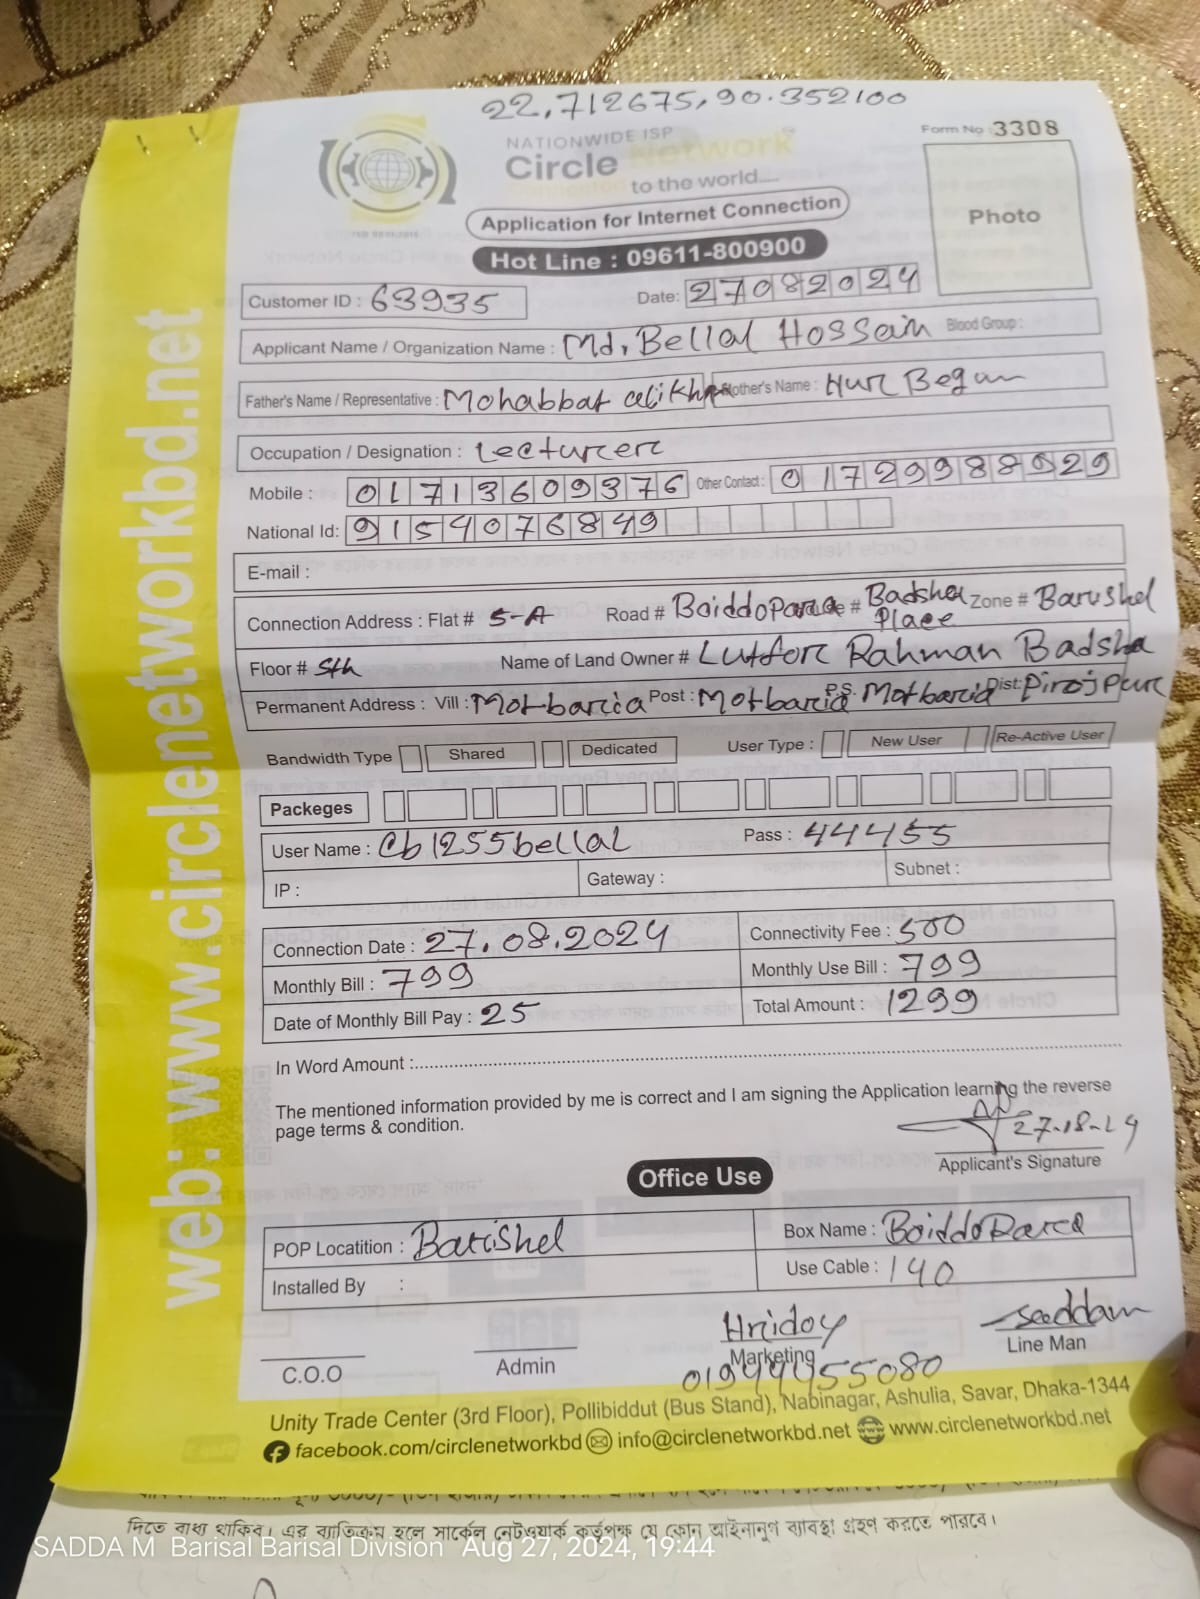 22.712675,90.352100
Form No 3308
NATIONWIDE ISP
Circle Network
to the world....
Photo
Application for Internet Connection
Hot Line : 09611-800900
Customer ID : 63935 Date: 27082024
Applicant Name / Organization Name : Md. Bellal Hossain Blood Group :
Father's Name / Representative : Mohabbat ali Khan Mother's Name : Nur Begum
Occupation / Designation : Lecturer
Mobile : 01713609376 Other Contact : 01729988929
National Id: 9154076849
E-mail :
Connection Address : Flat # 5-A Road # Boiddopara # Badsha Place Zone # Barishal
Floor # 5th Name of Land Owner # Lutfor Rahman Badsha
Permanent Address : Vill : Motbaria Post : Motbaria P.S. Motbaria Dist: Pirojpur
Bandwidth Type Shared Dedicated User Type : New User Re-Active User
Packeges
User Name : cb1255bellal Pass : 44455
IP : Gateway : Subnet :
Connection Date : 27.08.2024 Connectivity Fee : 500
Monthly Bill : 799 Monthly Use Bill : 799
Date of Monthly Bill Pay : 25 Total Amount : 1299
In Word Amount :
The mentioned information provided by me is correct and I am signing the Application learning the reverse
page terms & condition.
27-18-24
Applicant's Signature
Office Use
POP Locatition : Barishal Box Name : Boiddopara
Installed By : Use Cable : 140
Hridoy saddam
C.O.O Admin Marketing Line Man
01944455080
Unity Trade Center (3rd Floor), Pollibiddut (Bus Stand), Nabinagar, Ashulia, Savar, Dhaka-1344
facebook.com/circlenetworkbd info@circlenetworkbd.net www.circlenetworkbd.net
web: www.circlenetworkbd.net
দিতে বাধ্য থাকিব। এর ব্যতিক্রম হলে সার্কেল নেটওয়ার্ক কর্তৃপক্ষ যে কোন আইনানুগ ব্যবস্থা গ্রহণ করতে পারবে।
SADDA M Barisal Barisal Division Aug 27, 2024, 19:44